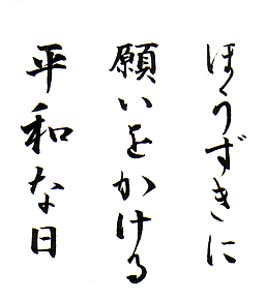 ほうずきに
願いをかける
平和な日